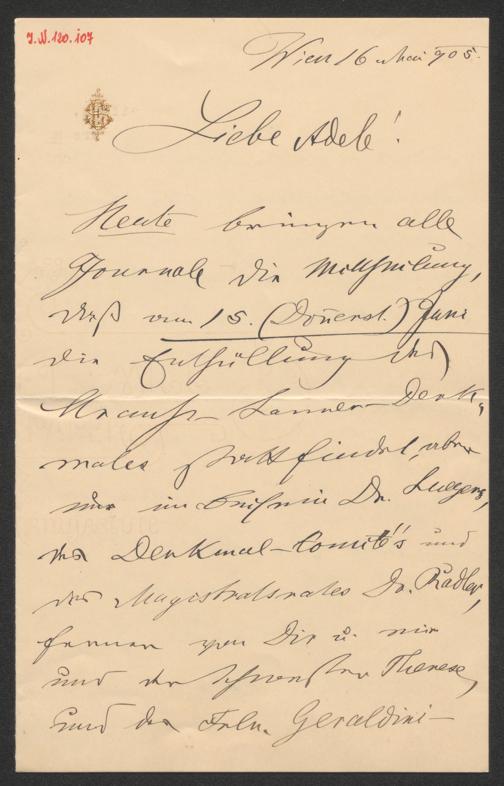 I.N. 120.107
Wien 16 Mai 905.
Liebe Adele!
Heute bringen alle
Journale die Mittheilung,
daß am 15. (Donerst.) Juni
die Enthüllung des
Strauss-Lanner-Denk-
males stattfindet, aber
nur im Beisein Dr. Luegers,
des Denkmal-Comité's und
des Magistratsrates Dr.
ferner von Dir u. mir
und der Schwester Therese,
und der Frln. Geraldini-